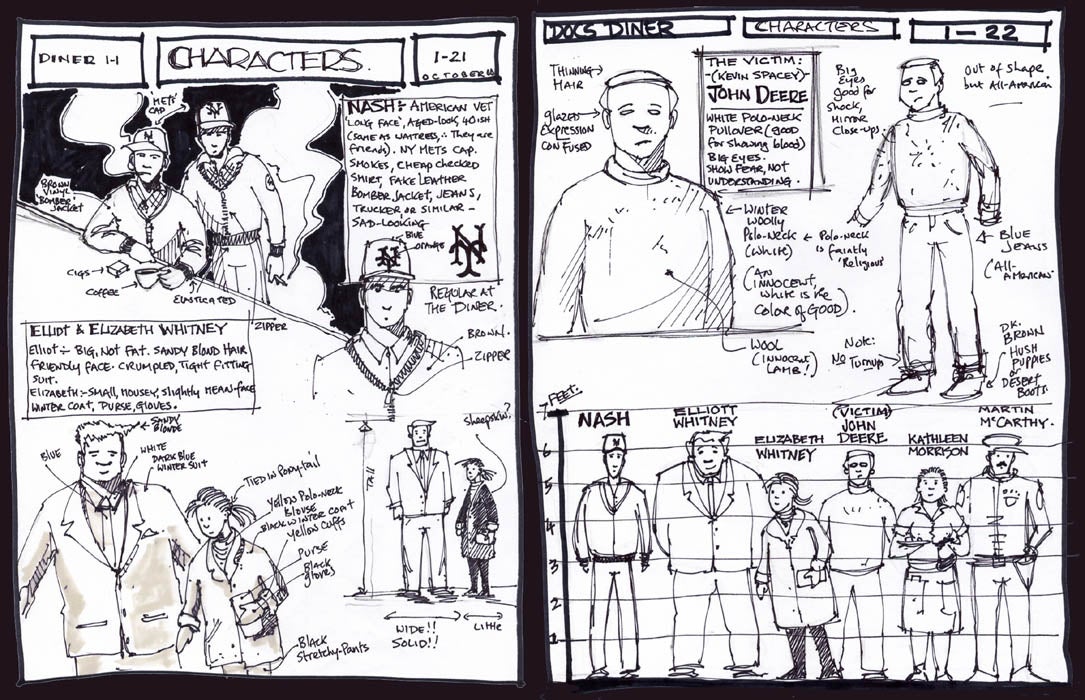 DINER 1-1
CHARACTERS.
1-21
OCTOBER
METS'
CAP
NY
NY
BROWN
VINYL
'BOMBER'
JACKET
CIGS
COFFEE
ELASTICATED
NASH:- AMERICAN VET
'LONG FACE', AGED-LOOK, 40 ISH
(SAME AS WAITRESS, ∴ They are
friends). NY METS CAP.
SMOKES, CHEAP CHECKED
SHIRT, FAKE LEATHER
BOMBER JACKET, JEANS,
TRUCKER OR SIMILAR -
SAD-LOOKING
BLUE
ORANGE
NY
NY
REGULAR AT
THE DINER.
BROWN.
ZIPPER
ZIPPER
ELLIOT & ELIZABETH WHITNEY
Elliot:- BIG, NOT FAT. SANDY BLOND HAIR
FRIENDLY FACE. CRUMPLED, TIGHT FITTING
SUIT.
ELIZABETH:- SMALL, MOUSEY, slightly MEAN-FACE
WINTER COAT, PURSE, GLOVES.
SANDY
BLONDE
BLUE
WHITE
DARK BLUE
WINTER SUIT
TIED IN PONY-TAIL
YELLOW POLO-NECK
BLOUSE
BLACK WINTER COAT
YELLOW CUFFS
PURSE
BLACK
GLOVES
BLACK
Stretchy-PANTS
TALL
Sheepskin?
WIDE!!
SOLID!!
Little
DOCS DINER
CHARACTERS
1-22
THINNING
HAIR
glazed
EXPRESSION
CONFUSED
THE VICTIM:
-(KEVIN SPACEY)-
JOHN DEERE
WHITE POLO-NECK
PULLOVER (good
for showing blood)
BIG EYES.
SHOW FEAR, NOT
UNDERSTANDING.
BIG
EYES
good for
SHOCK,
MIRROR
CLOSE-UPS
OUT OF SHAPE
but ALL-AMERICAN
WINTER
WOOLLY
POLO-NECK
(WHITE)
POLO-NECK
is faintly
'Religious'
(AN
INNOCENT,
WHITE is the
COLOR OF GOOD).
WOOL
(INNOCENT
LAMB!)
BLUE
JEANS
(ALL-
AMERICAN)
Note:
No Turnup
DK.
BROWN
HUSH
PUPPIES
OR
DESERT
BOOTS.
FEET.
7
6
5
4
3
2
1
NASH
ELLIOTT
WHITNEY
ELIZABETH
WHITNEY
(VICTIM)
JOHN
DEERE
KATHLEEN
MORRISON
MARTIN
McCARTHY.